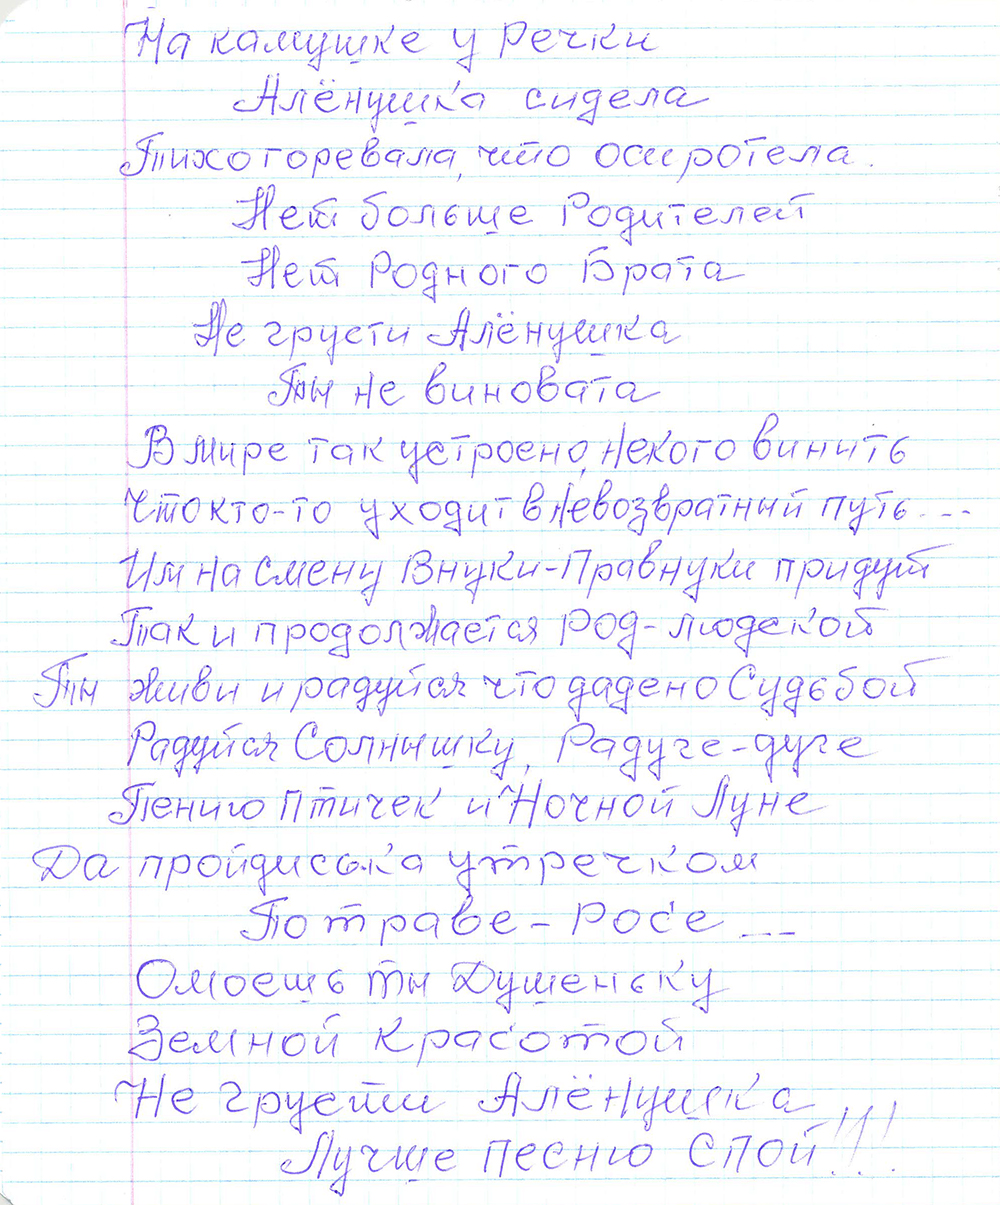 На камушке у Речки
Алёнушка сидела
Тихо горевала, что осиротела.
Нет больше Родителей
Нет Родного Брата
Не грусти Алёнушка
Ты не виновата
В мире так устроено, некого винить
Что кто-то уходит в невозвратный путь...
Им на смену Внуки-Правнуки придут
Так и продолжается Род-людской
Ты живи и радуйся что дадено Судьбой
Радуйся Солнышку, Радуге-дуге
Пению птичек и Ночной Луне
Да пройдиська утречком
По траве-Росе...
Омоешь ты Душеньку
Земной Красотой
Не грусти Алёнушка
Лучше песню Спой!!!